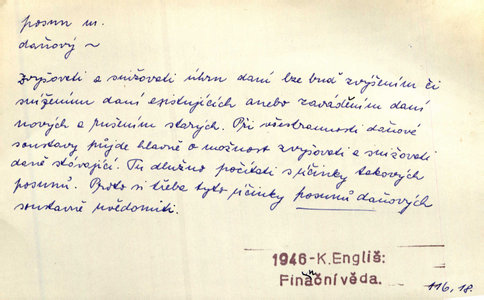 posun m.
daňový ~
Zvyšovati a snižovati úhrn daní lze buď zvýšením či
snížením daní existujících anebo zaváděním daní
nových a rušením starých. Při všestrannosti daňové
soustavy půjde hlavně o možnost zvyšovati a snižovati
daně stávající. Tu dlužno počítati s účinky takových
posunů. Proto si třeba tyto účinky posunů daňových
soustavně uvědomiti.
1946-K.Engliš:
Finanční věda.
116, 18.